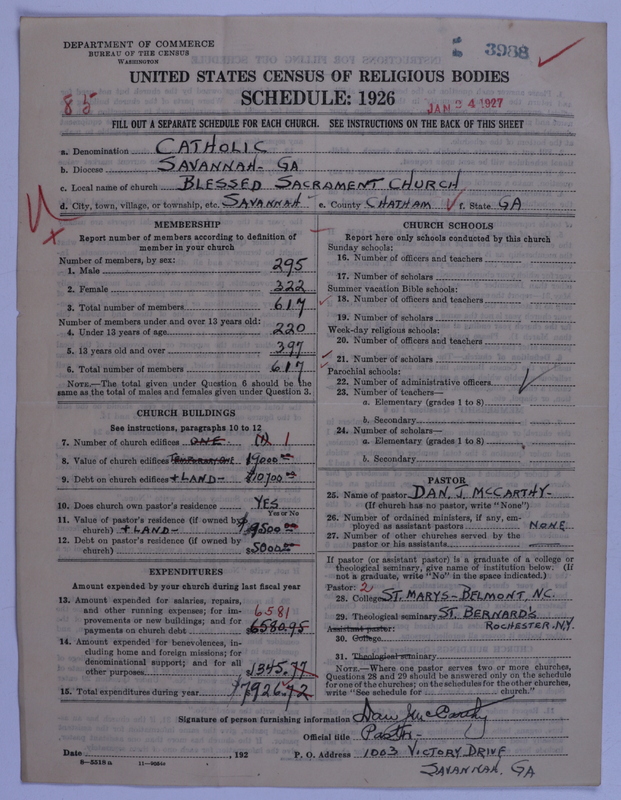 DEPARTMENT OF COMMERCE
BUREAU OF THE CENSUS
WASHINGTON
3988
UNITED STATES CENSUS OF RELIGIOUS BODIES
SCHEDULE: 1926
85
JAN 24 1927
FILL OUT A SEPARATE SCHEDULE FOR EACH CHURCH. SEE INSTRUCTIONS ON THE BACK OF THIS SHEET
a. Denomination CATHOLIC
b. Diocese SAVANNAH- GA
c. Local name of church BLESSED SACRAMENT CHURCH
d. City, town, village, or township, etc. SAVANNAH- e. County CHATHAM f. State GA
MEMBERSHIP
Report number of members according to definition of
member in your church
Number of members, by sex:
1. Male 295
2. Female 322
3. Total number of members 617
Number of members under and over 13 years old:
4. Under 13 years of age 220
5. 13 years old and over 397
6. Total number of members 617
NOTE.—The total given under Question 6 should be the
same as the total of males and females given under Question 3.
CHURCH BUILDINGS
See instructions, paragraphs 10 to 12
7. Number of church edifices ONE- 1
8. Value of church edifices 19000.00
9. Debt on church edifices +LAND- $10700.00
10. Does church own pastor's residence YES
Yes or No
11. Value of pastor's residence (if owned by
church) + LAND- $9500.00
12. Debt on pastor's residence (if owned by
church) $5000.00
EXPENDITURES
Amount expended by your church during last fiscal year
13. Amount expended for salaries, repairs,
and other running expenses; for im- 6581
provements or new buildings; and for
payments on church debt $6580.95
14. Amount expended for benevolences, in-
cluding home and foreign missions; for
denominational support; and for all
other purposes $1345.77
15. Total expenditures during year $7926.72
CHURCH SCHOOLS
Report here only schools conducted by this church
Sunday schools:
16. Number of officers and teachers
17. Number of scholars
Summer vacation Bible schools:
18. Number of officers and teachers
19. Number of scholars
Week-day religious schools:
20. Number of officers and teachers
21. Number of scholars
Parochial schools:
22. Number of administrative officers
23. Number of teachers—
a. Elementary (grades 1 to 8)
b. Secondary
24. Number of scholars—
a. Elementary (grades 1 to 8)
b. Secondary
PASTOR
25. Name of pastor DAN. J. MCCARTHY-
(If church has no pastor, write "None")
26. Number of ordained ministers, if any, em-
ployed as assistant pastors NONE
27. Number of other churches served by the
pastor or his assistants
If pastor (or assistant pastor) is a graduate of a college or
theological seminary, give name of institution below. (If
not a graduate, write "No" in the space indicated.)
Pastor: 2
28. College ST. MARYS- BELMONT, NC.
29. Theological seminary ST. BERNARD'S
Assistant pastor: ROCHESTER, N.Y.
30. College
31. Theological seminary
NOTE.—Where one pastor serves two or more churches,
Questions 28 and 29 should be answered only on the schedule
for one of the churches; on the schedules for the other churches,
write "See schedule for church."
Signature of person furnishing information Dan McCarthy
Official title Pastor-
Date , 192 P. O. Address 1003 VICTORY DRIVE
8-5318a 11-9664
SAVANNAH, GA